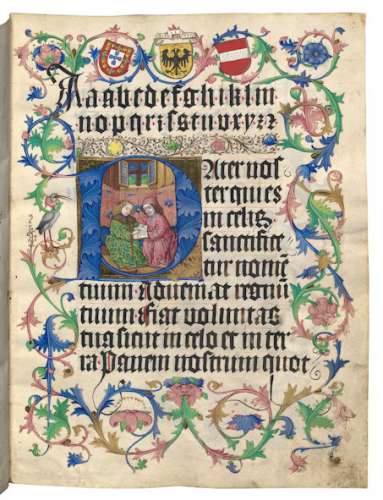 Aaabcdefghiklm
nopqrꝛſstuvxyzꝛ
Pater nos
ter qui es
in celis
sanctifice
tur nomē
tuum Adveniat regnū
tuum Fiat voluntas
tua sicut in celo et in ter
ra Panem nostrum quot